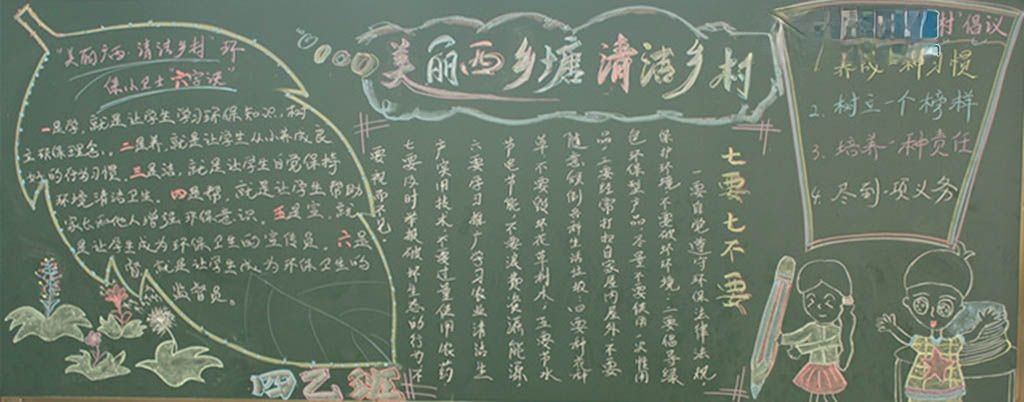 美丽西乡塘 清洁乡村
"美丽广西 清洁乡村"环
保小卫士六字诀
一是学，就是让学生学习环保知识，树
立环保理念。二是养，就是让学生从小养成良
好的行为习惯。三是洁，就是让学生自觉保持
环境清洁卫生。四是帮，就是让学生帮助
家长和他人增强环保意识。五是宣，就
是让学生成为环保卫生的宣传员。六是
督，就是让学生成为环保卫生的
监督员。
四乙班
七要七不要
一要自觉遵守环保法律法规，
保护环境，不要破坏环境；二要倡导绿
色环保型产品，不要
品；三要经常打扫自家屋内屋外，不要
随意倾倒各种生活垃圾；四要种花种
草，不要毁坏花草树木；五要节水
节电节能，不要浪费资源能源；
六要学习推广学习农业清洁生
产实用技术，不要过量使用农药
七要及时举报破坏生态的行为，不
要视而不见。
村"倡议
1. 养成一种习惯
2. 树立一个榜样
3. 培养一种责任
4. 尽到一项义务